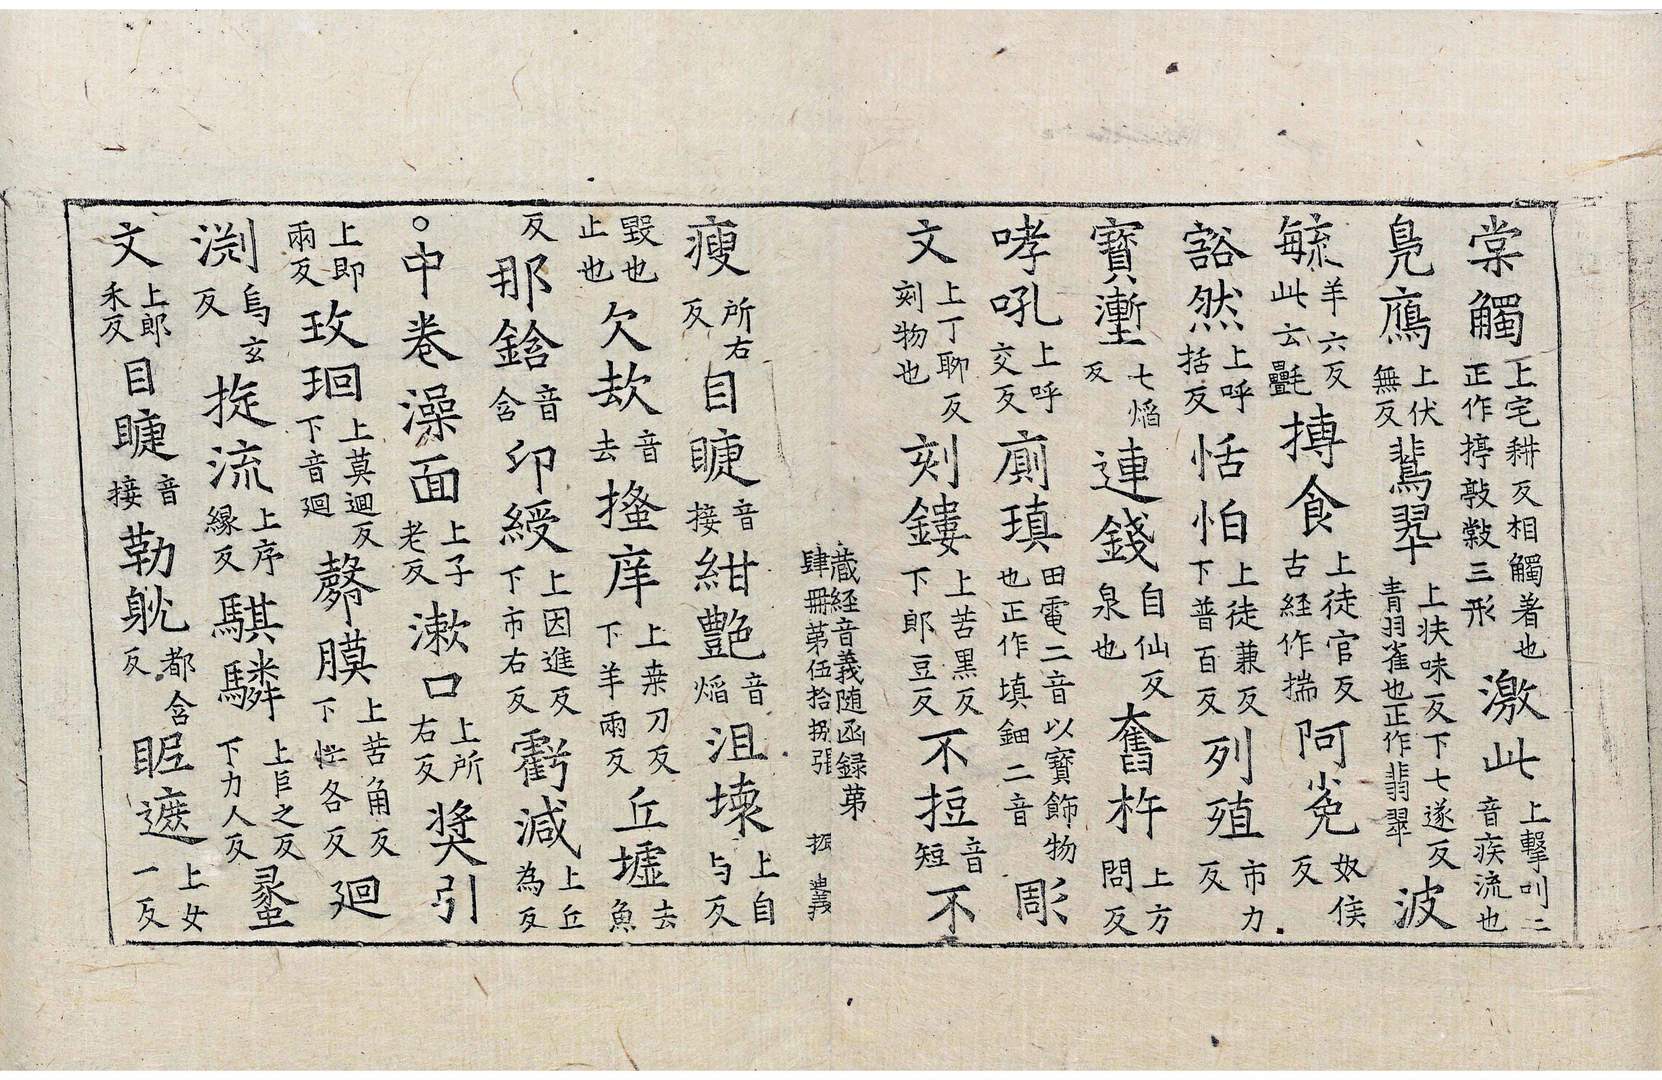 棠觸上宅耕反相觸著也正作揨敲㲉三形激此上擊叫二音疾流也
鳧鴈上伏無反翡翠上扶味反下七遂反青羽雀也正作翡翠波
毓羊六反此云㲲搏食上徒官反古経作揣阿㝹奴侯反
豁然上呼括反恬怕上徒兼反下普百反列殖市力反
寶壍七焰反連錢自仙反泉也奮杵上方問反
哮吼上呼交反廁瑱田電二音以寶飾物也正作填鈿二音彫
文上丁聊反刻物也刻鏤上苦黑反下郎豆反不𢭃音短不
蔵経音義随函録第肆冊第伍拾捌張
瘦所右反目𥇒音接紺艷音焰沮壞上自与反
毀也止也欠欬音去搔庠上桒刀反下羊兩反丘墟去魚
反那鋡音含印綬上因進反下市右反虧減上丘為反
○中卷澡面上子老反漱口上所右反奬引
上即兩反玫珻上莫迴反下音迴膋膜上苦角反下忙各反迴
渕烏玄反㨁流上序縁反騏驎上巨之反下力人反𧎥
文上郎禾反目𥇒音接勒躭都含反䀼遮上女一反